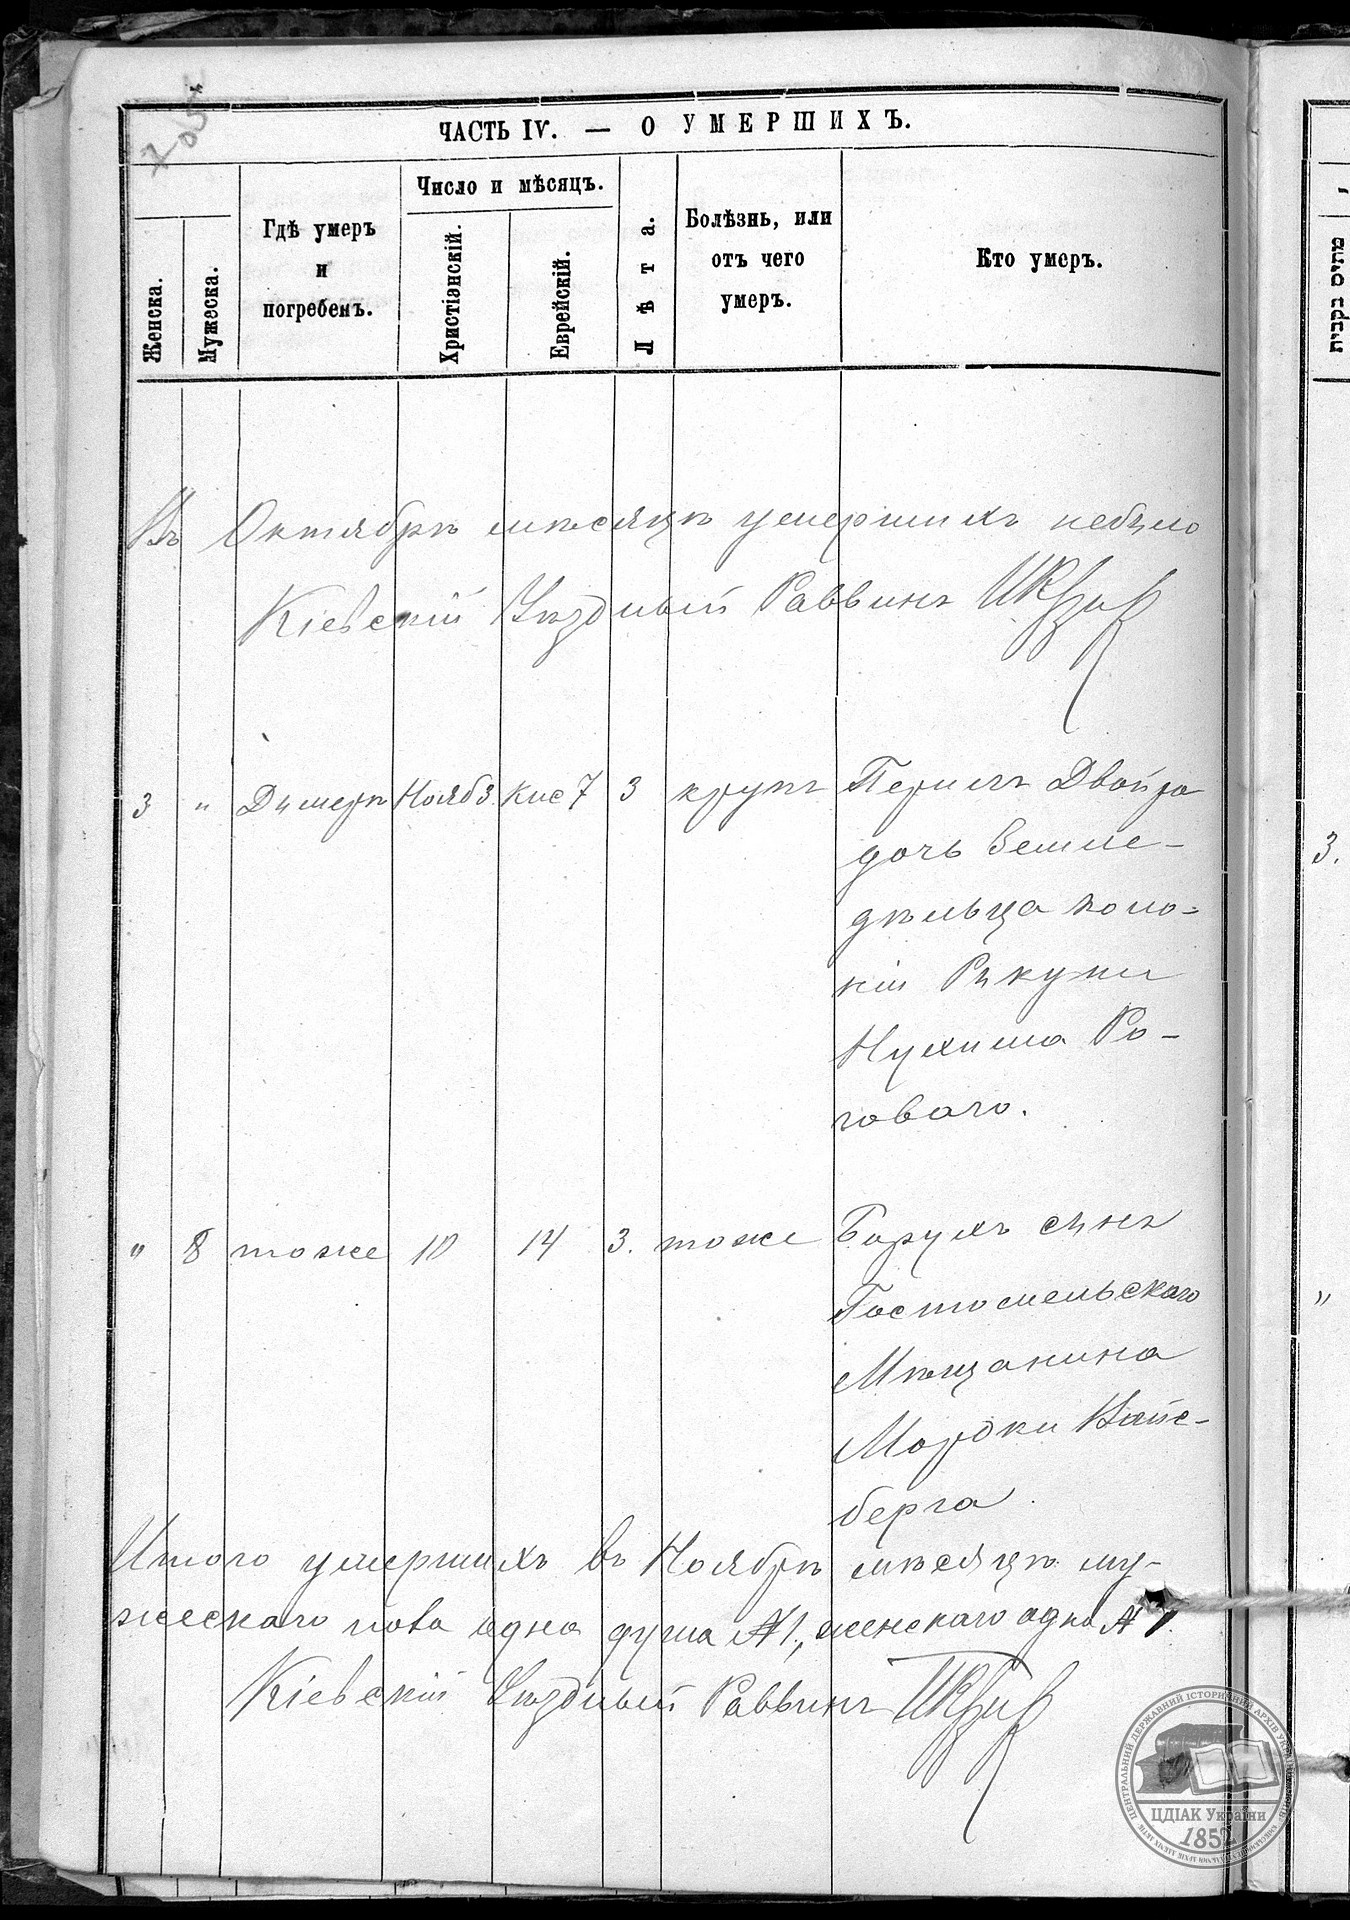 ЧАСТЬ IV. — О УМЕРШИХЪ.
Женска.
Мужеска.
Гдѣ умеръ
и
погребенъ.
Число и мѣсяцъ.
Христіэнскій.
Еврейскій.
Лѣта.
Болѣзнь, или
отъ чего
умеръ.
Кто умеръ.
Въ Октябрѣ мѣсяцѣ умершихъ небыло
Кіевскій Уѣздный Раввинъ
3 " Дымеръ Нояб 3 Кис 7 3 крупъ Перлъ Двойра
дочь Земле-
дѣльца коло-
ніи Рыкунь
Нухима Ро-
говаго.
" 8 тоже 10 14 3. тоже Борухъ сынъ
Гостомельскаго
Мѣщанина
Мордки Вайс-
берга
Итого умершихъ въ Ноябрѣ мѣсяцѣ му-
жескаго пола одна душа №1, женскаго одна № 1.
Кіевскій Уѣздный Раввинъ
ЦЕНТРАЛЬНИЙ ДЕРЖАВНИЙ ІСТОРИЧНИЙ АРХІВ УКРАЇНИ
ЦДІАК України
1852
מתים נקבות
3.
"